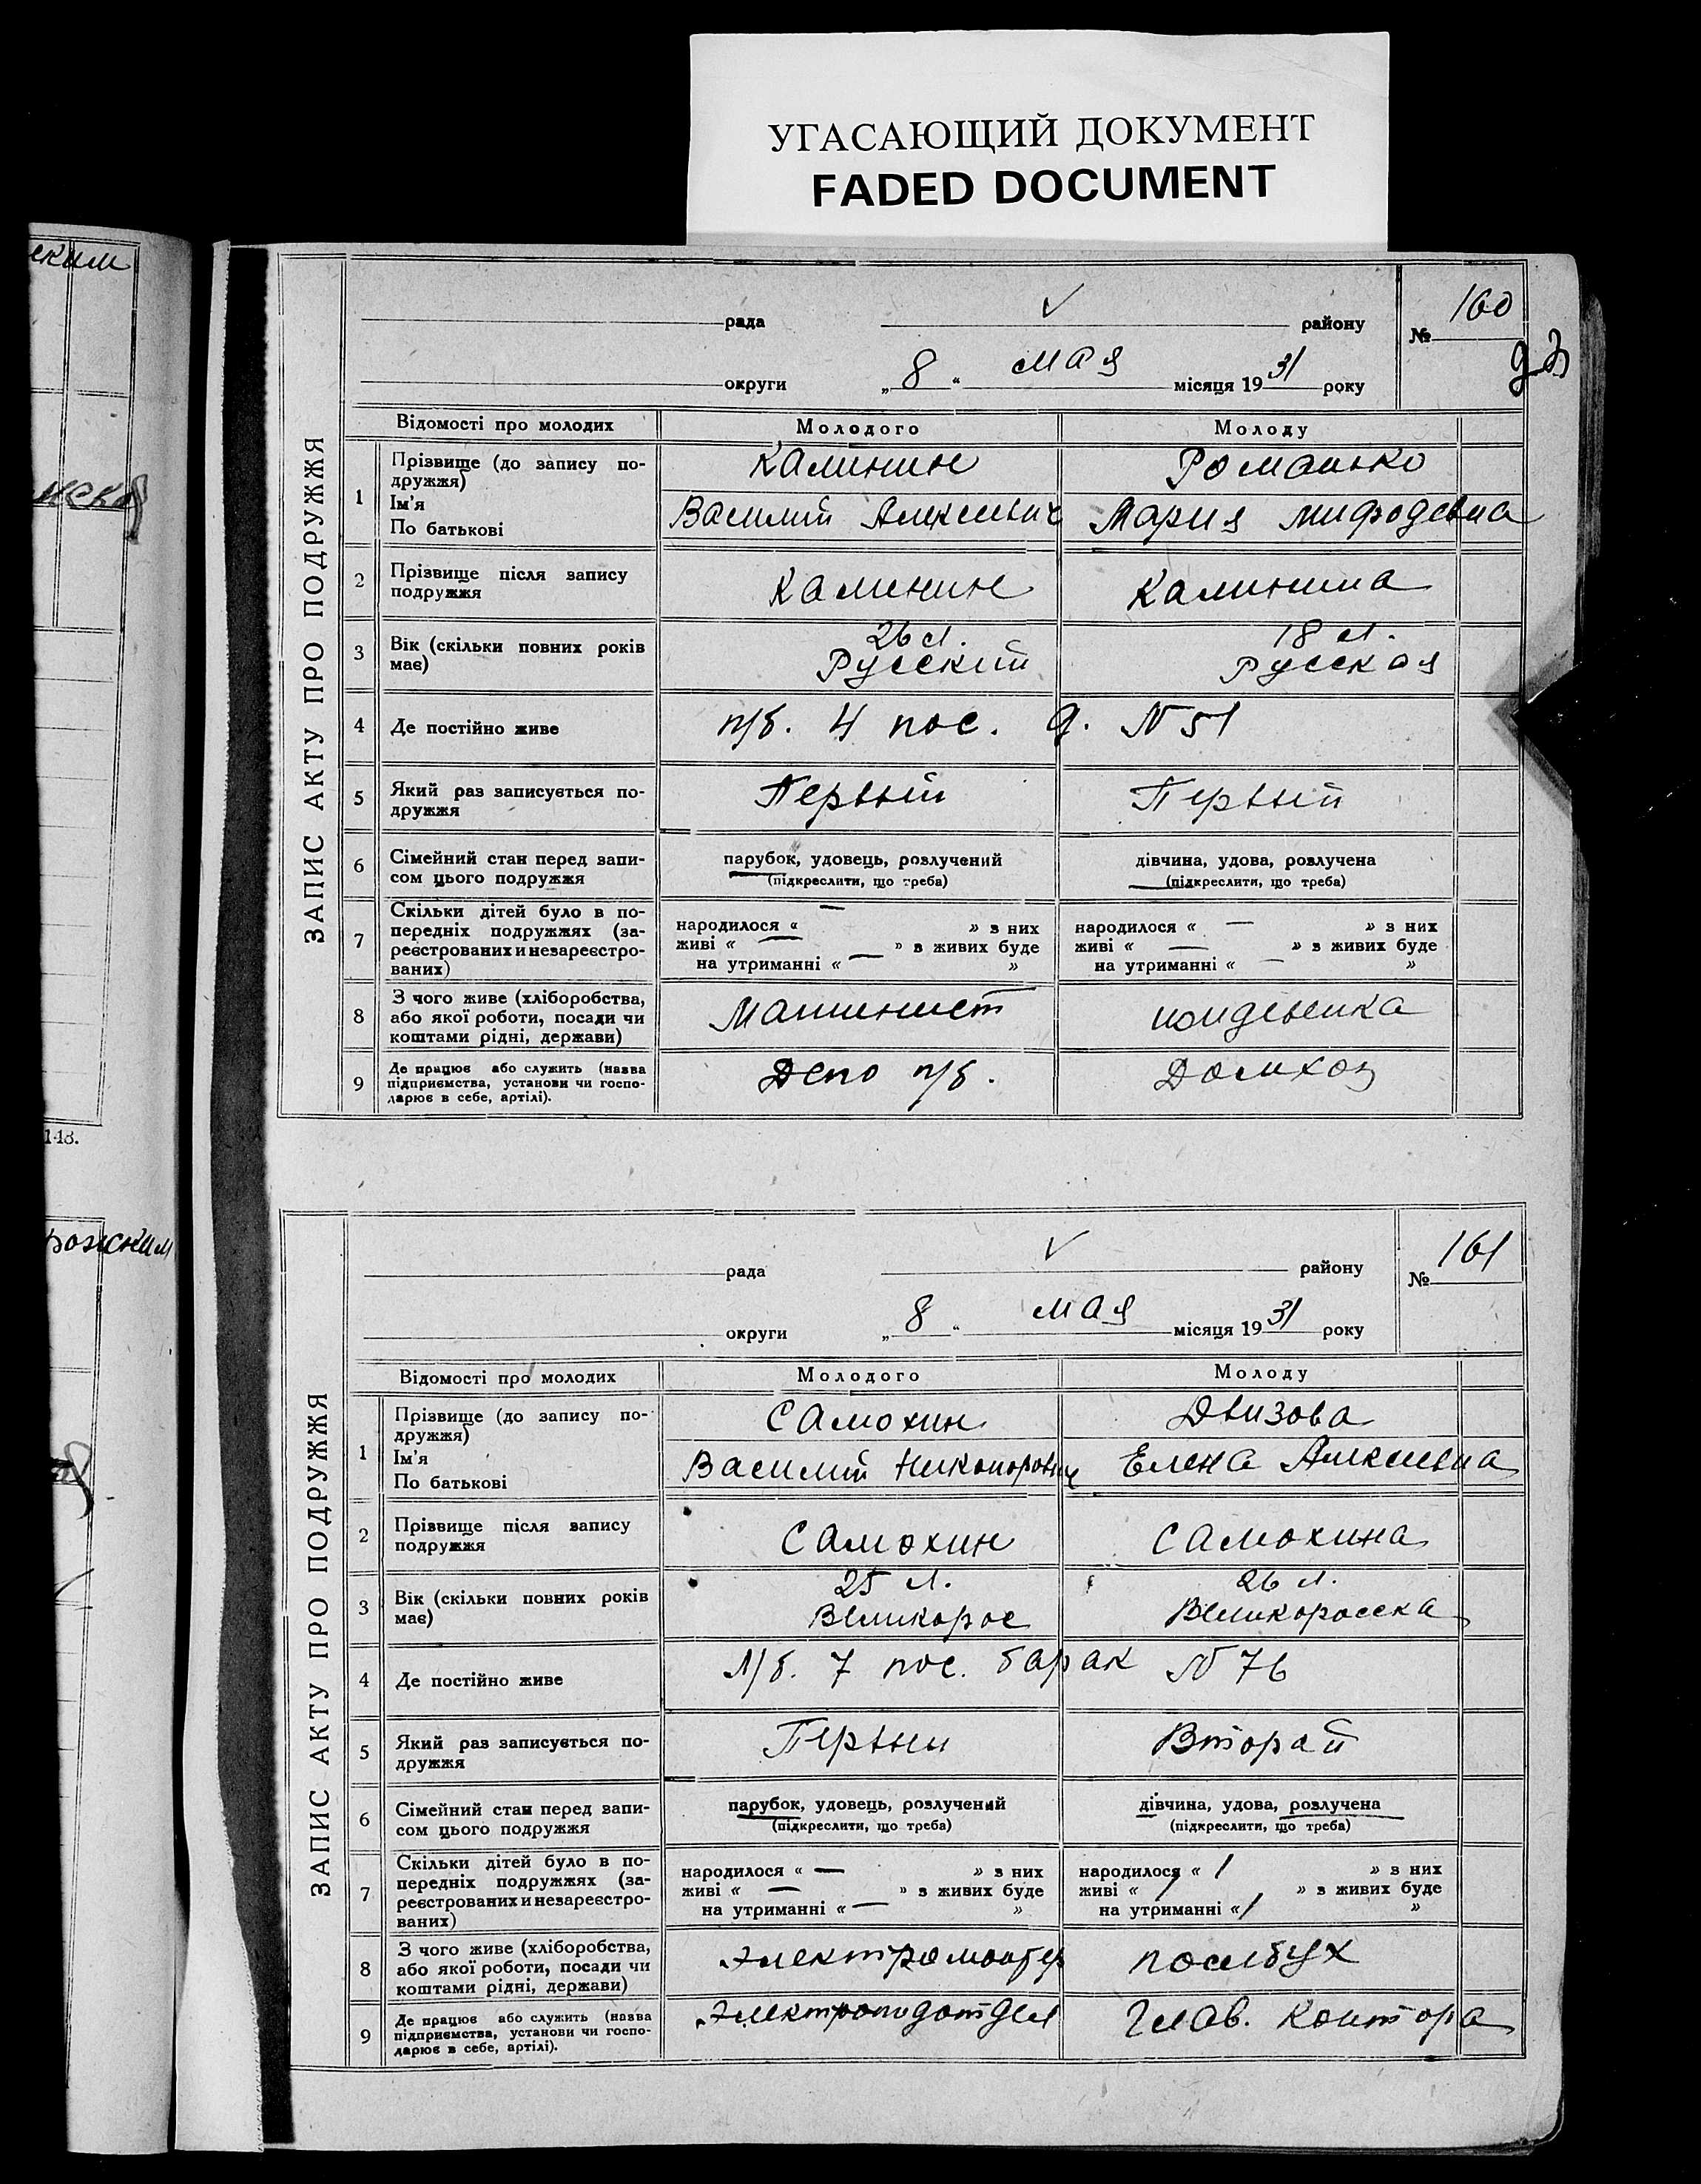 УГАСАЮЩИЙ ДОКУМЕНТ
FADED DOCUMENT
ским
148.
рожским
ЗАПИС АКТУ ПРО ПОДРУЖЖЯ
рада
району
№ 160
93
округи
„ 8 “ мая місяця 19 31 року
Відомості про молодих
Молодого
Молоду
1
Прізвище (до запису по-
дружжя)
Ім'я
По батькові
Калинин
Василий Алексеевич
Романько
Мария Мифодевна
2
Прізвище після запису
подружжя
Калинин
Калинина
3
Вік (скільки повних років
має)
26 л.
Русский
18 л.
Русская
4
Де постійно живе
п/б. 4 пос. д. N 51
5
Який раз записується по-
дружжя
Первый
Первый
6
Сімейний стан перед запи-
сом цього подружжя
парубок, удовець, розлучений
(підкреслити, що треба)
дівчина, удова, розлучена
(підкреслити, що треба)
7
Скільки дітей було в по-
передніх подружжях (за-
реєстрованих и незареєстро-
ваних)
народилося « — » з них
живі « — » в живих буде
на утриманні « — »
народилося « — » з них
живі « — » в живих буде
на утриманні « — »
8
З чого живе (хліборобства,
або якої роботи, посади чи
коштами рідні, держави)
Машинист
9
Де працює або служить (назва
підприємства, установи чи госпо-
дарює в себе, артілі).
Депо п/б.
Домхоз
ЗАПИС АКТУ ПРО ПОДРУЖЖЯ
рада
району
№ 161
округи
„ 8 “ мая місяця 19 31 року
Відомості про молодих
Молодого
Молоду
1
Прізвище (до запису по-
дружжя)
Ім'я
По батькові
Самохин
Василий Никонорович
Двизова
Елена Алексеевна
2
Прізвище після запису
подружжя
Самохин
Самохина
3
Вік (скільки повних років
має)
25 л.
Великорос
26 л.
Великоросска
4
Де постійно живе
Л/б. 7 пос. барак N 76
5
Який раз записується по-
дружжя
Первый
Второй
6
Сімейний стан перед запи-
сом цього подружжя
парубок, удовець, розлучений
(підкреслити, що треба)
дівчина, удова, розлучена
(підкреслити, що треба)
7
Скільки дітей було в по-
передніх подружжях (за-
реєстрованих и незареєстро-
ваних)
народилося « — » з них
живі « — » в живих буде
на утриманні « — »
народилося « 1 » з них
живі « 1 » в живих буде
на утриманні « 1 »
8
З чого живе (хліборобства,
або якої роботи, посади чи
коштами рідні, держави)
Электромонтер
помбух
9
Де працює або служить (назва
підприємства, установи чи госпо-
дарює в себе, артілі).
Электроподотдел
Глав. контора